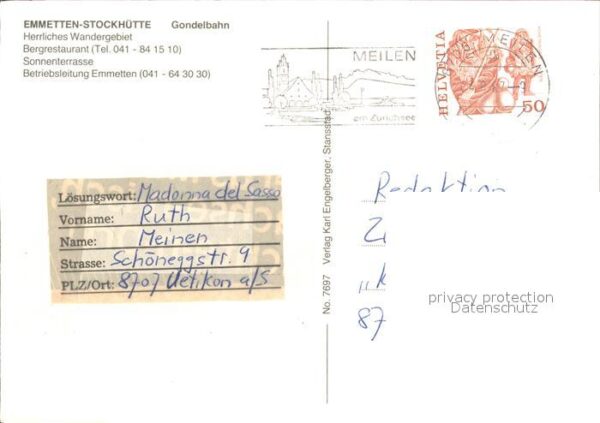 EMMETTEN-STOCKHÜTTE Gondelbahn
Herrliches Wandergebiet
Bergrestaurant (Tel. 041 - 84 15 10)
Sonnenterrasse
Betriebsleitung Emmetten (041 - 64 30 30)
MEILEN
am Zürichsee
HELVETIA
50
MEILEN
Lösungswort: Madonna del Sasso
Vorname: Ruth
Name: Meinen
Strasse: Schöneggstr. 9
PLZ/Ort: 8707 Uetikon a/S
No. 7697 Verlag Karl Engelberger, Stansstad
Redaktion
Zi
„k
87
privacy protection
Datenschutz